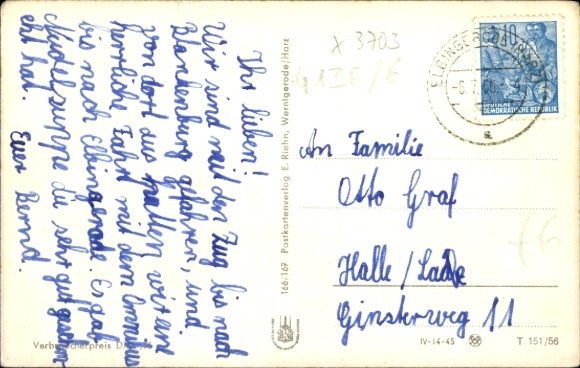 Ihr lieben!
Wir sind mit den Zug bis nach
Blankenburg gefahren, und
von dort aus hatten wir eine
herrliche Fahrt mit dem Omnibus
bis nach Elbingerode. Es gab
Nudelsuppe die sehr gut geschm
ekt hat. Euer Bernd.
Verbraucherpreis DM
166/167 Postkartenverlag E. Riehn, Wernigerode/Harz
x 3703
4136/6
ELBINGERODE (HARZ)
10
DEUTSCHE
DEMOKRATISCHE REPUBLIK
a
An Familie
Otto Graf
Halle/Saale
Ginsterweg 11
IV-14-45
T 151/56